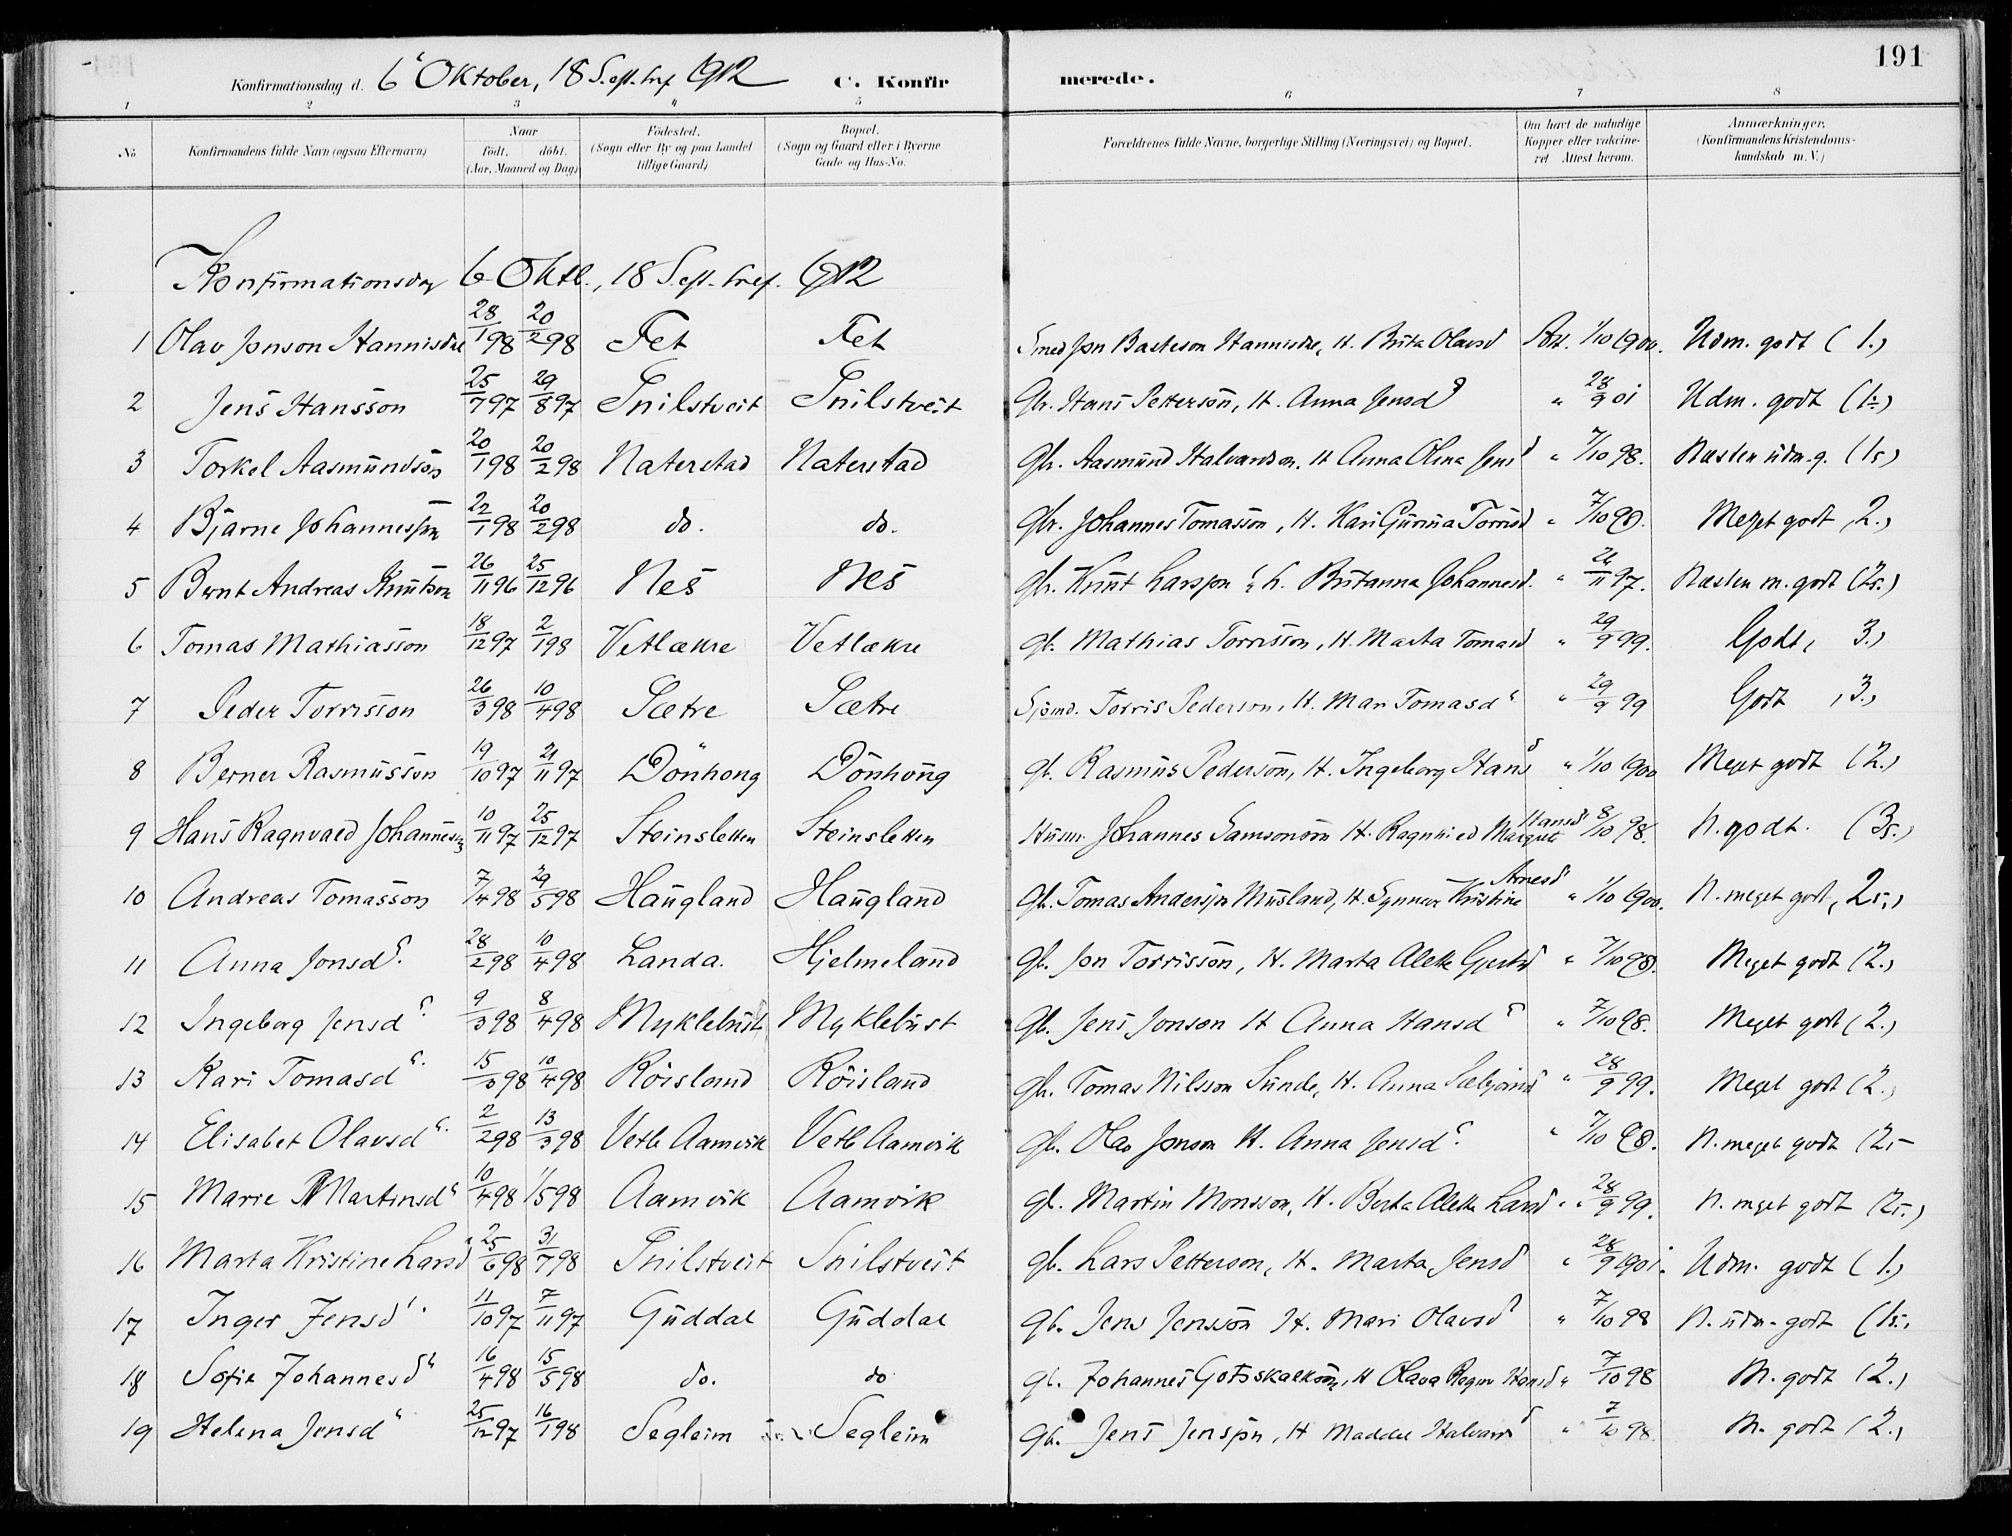 191
Konfirmationsdag d. 6 Oktober, 18 Sept. tref 1912 C. Konfir merede.
1 2 3 4 5 6 7 8
No Konfirmandens fulde Navn (ogsaa Efternavn) Naar født. døbt. (Aar, Maaned og Dag) Fødested. (Sogn eller By og paa Landet tillige Gaard) Bopæl. (Sogn og Gaard eller i Byerne Gade og Hus-No. Forældrenes fulde Navne, borgerlige Stilling (Næringsvei) og Bopæl. Om havt de naturlige Kopper eller vakcineret. Attest herom. Anmærkninger. (Konfirmandens Kristendomskundskab m. V.)
Konfirmationsdag 6 Oktb., 18 Sept. tref. 1912
1 Olav Jonson Hannisdal 28/1 98 20/2 98 Fet Fet Smed Jon Hannisdal, H. Brita Olavsd Att. 1/10 1900. Udm. godt (1.)
2 Jens Hansson 25/7 97 29/8 97 Snilstveit Snilstveit Gbr. Hans Petterson, H. Anna Jensd " 28/9 01 Udm. godt (1.)
3 Torkel Aasmundson 20/1 98 20/2 98 Naterstad Naterstad Gbr. Aasmund Halvardson, H Anna Olina Jensd " 7/10 98. Næsten udm. g. (1s)
4 Bjarne Johannesson 22/1 98 20/2 98 do. do. Gbr. Johannes Tomasson, H. Kari Gurina Torrisd " 7/10 98. Meget godt, 2.)
5 Bernt Andreas Knutson 26/11 96 25/12 96 Nes Nes Gbr. Knut Larsson H. Britanna Johannesd. " 26/11 97. Næsten m. godt (2s.)
6 Tomas Mathiasson 18/12 97 2/1 98 Vetlækre Vetlækre Gb. Mathias Torrisson, H. Marta Tomasd " 29/9 99. Godt, 3.)
7 Peder Torrisson 26/3 98 10/4 98 Sætre Sætre Sjømd. Torris Pederson, H. Mari Tomasd " 29/9 99 Godt, 3.)
8 Berner Rasmusson 19/10 97 21/11 97 Dönhong Dönhong Gb. Rasmus Pederson, H. Ingeborg Hansd " 1/10 1900 Meget godt (2.)
9 Hans Ragnvald Johannesson 10/11 97 25/12 97 Steinsletten Steinsletten Husm. Johannes Samsonson H. Ragnhild Margrete Hansd 8/10 98. N. godt. (3s.)
10 Andreas Tomasson 7/4 98 29/5 98 Haugland Haugland Gb. Tomas Anderson Musland, H. Synneva Kristine Arnesd " 1/10 1900. N. meget godt, 2s.)
11 Anna Jonsd. 28/2 98 10/4 98 Landa. Hjelmeland Gb. Jon Torrisson, H. Marta Alette Gjertsd " 7/10 98. Meget godt (2.)
12 Ingeborg Jensd 9/3 98 8/4 98 Myklebust Myklebust Gb. Jens Jonson H Anna Hansd " 7/10 98. Meget godt (2.)
13 Kari Tomasd 15/3 98 10/4 98 Röisland Röisland Gb. Tomas Nilsson Sunde, H. Anna " 28/9 99. Meget godt (2.)
14 Elisabet Olavsd 2/2 98 13/3 98 Vetle Aamvik Vetle Aamvik Gb. Olav Jonson H. Anna Jensd " 7/10 98. N. meget godt (2s
15 Marie Martinsd 10/4 98 1/5 98 Aamvik Aamvik Gb. Martin Monsson, H. Berta Alette Larsd " 28/9 99. N. meget godt (2s.)
16 Marta Kristine Larsd 25/6 98 31/7 98 Snilstveit Snilstveit Gb. Lars Petterson, H. Marta Jensd " 28/9 1901. Udm. godt (1.)
17 Inger Jensd. 11/10 97 7/11 97 Guddal Guddal Gb. Jens Jensson H. Mari Olavsd " 7/10 98 N. udm. godt (1s.
18 Sofie Johannesd 16/4 98 15/5 98 do. do Gb. Johannes Gotskalkson, H Olava Hansd " 7/10 98 M. godt (2.)
19 Helena Jensd 25/12 97 16/1 98 Segleim Segleim Gb. Jens Jenson, H Maddel Halvardsd " 7/10 98. M. godt (2.)